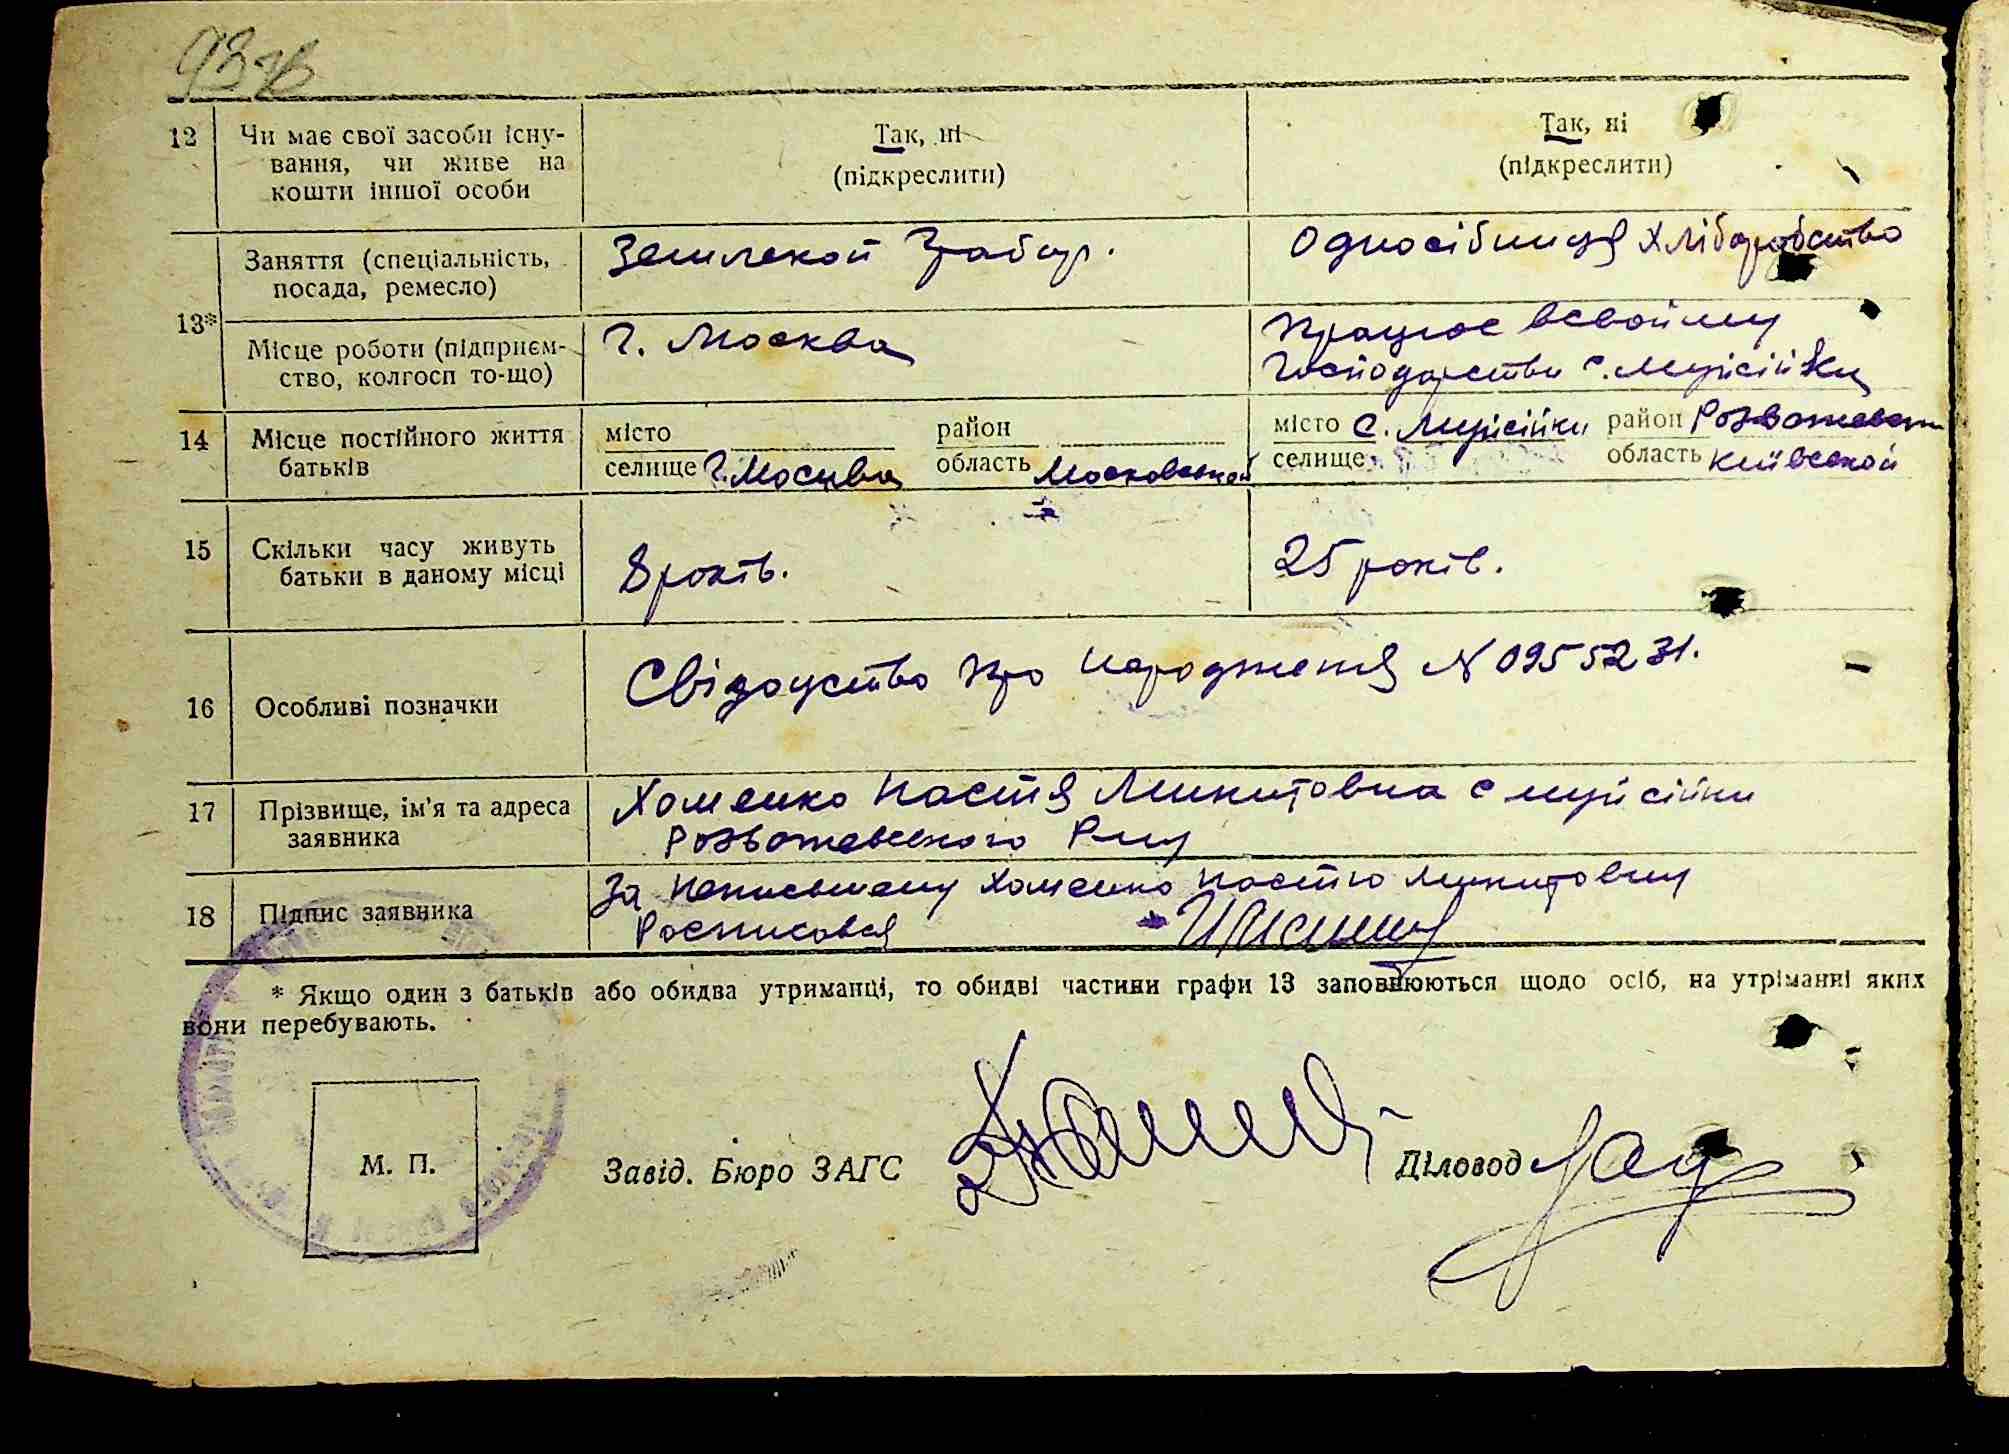 12 Чи має свої засоби існу-
вання, чи живе на
кошти іншої особи
Так, ні
(підкреслити)
Так, ні
(підкреслити)
13*
Заняття (спеціальність,
посада, ремесло)
Землекоп Грабар.
Односібниця Хліборобство
Місце роботи (підприєм-
ство, колгосп то-що)
г. Москва
Працює в свойму
господарстви с. Мусійки
14 Місце постійного життя
батьків
місто район
селище г. Москва область Московской
місто с. Мусійки район Розважевск
селище область Киівской
15 Скільки часу живуть
батьки в даному місці
8 років.
25 років.
16 Особливі позначки
Свідоцство про народженя N 0955231.
17 Прізвище, ім'я та адреса
заявника
Хоменко Настя Микитовна с Мусійки
Розважевского Р-ну
18 Підпис заявника
За неписьмену Хоменко Настю Микитовну
Росписався
* Якщо один з батьків або обидва утриманці, то обидві частини графи 13 заповнюються щодо осіб, на утріманні яких
вони перебувають.
М. П.
Завід. Бюро ЗАГС
Діловод